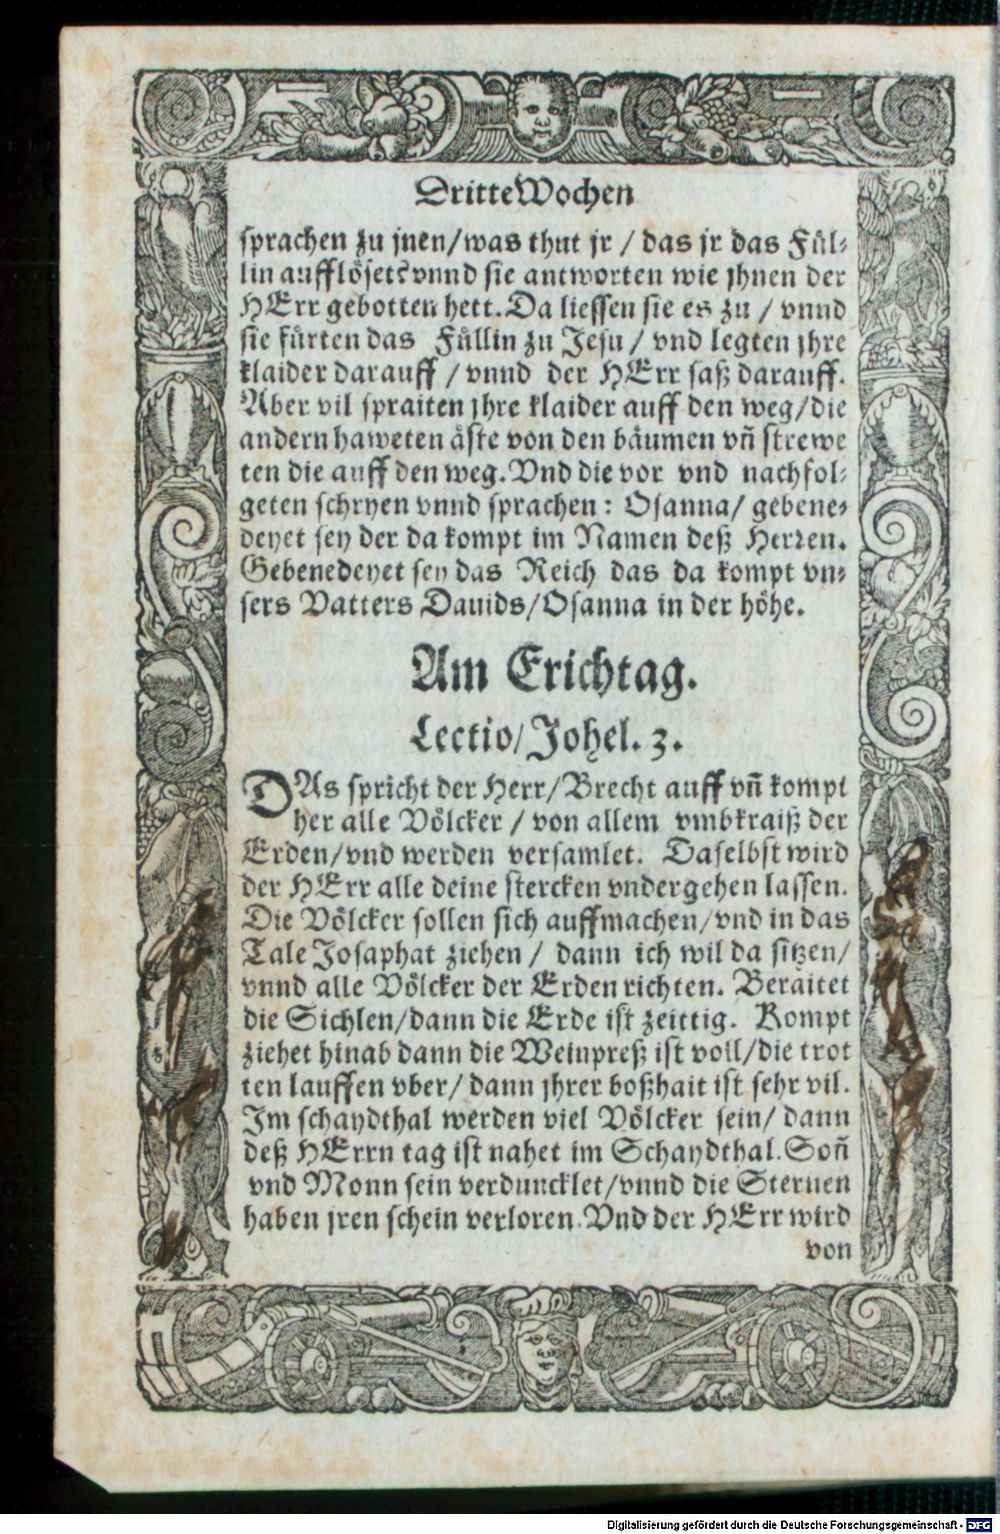 Dritte Wochen
sprachen zu jnen/was thut jr / das jr das Fül⸗
lin aufflöset? vnnd sie antworten wie jhnen der
HErr gebotten hett. Da liessen sie es zu / vnnd
sie fürten das Füllin zu Jesu / vnd legten jhre
klaider darauff / vnnd der HErr saß darauff.
Aber vil spraiten jhre klaider auff den weg/die
andern haweten äste von den bäumen vñ strewe
ten die auff den weg. Vnd die vor vnd nachfol⸗
geten schryen vnnd sprachen : Osanna/ gebene⸗
deyet sey der da kompt im Namen deß Herren.
Gebenedeyet sey das Reich das da kompt vn⸗
sers Vatters Dauids/Osanna in der höhe.
Am Erichtag.
Lectio/Johel. 3.
DAs spricht der Herr/Brecht auff vñ kompt
her alle Völcker / von allem vmbkraiß der
Erden/vnd werden versamlet. Daselbst wird
der HErr alle deine stercken vndergehen lassen.
Die Völcker sollen sich auffmachen/vnd in das
Tale Josaphat ziehen / dann ich wil da sitzen/
vnnd alle Völcker der Erden richten. Beraitet
die Sichlen/dann die Erde ist zeittig. Kompt
ziehet hinab dann die Weinpreß ist voll/die trot
ten lauffen vber/ dann jhrer boßhait ist sehr vil.
Im schaydthal werden viel Völcker sein/ dann
deß HErrn tag ist nahet im Schaydthal. Soñ
vnd Monn sein verduncklet/vnnd die Sternen
haben jren schein verloren. Vnd der HErr wird
von
Digitalisierung gefördert durch die Deutsche Forschungsgemeinschaft - DFG